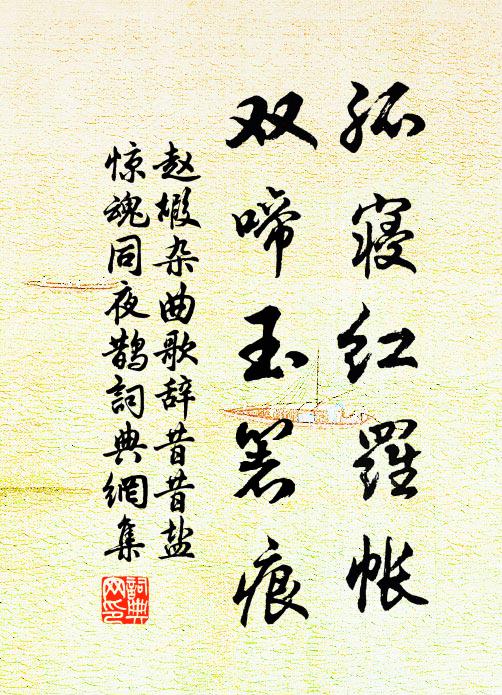 孤寝红羅帐
双啼玉箸痕
赵嘏杂曲歌辞昔昔盐
惊魂同夜鹊詞典網集
詞典网印